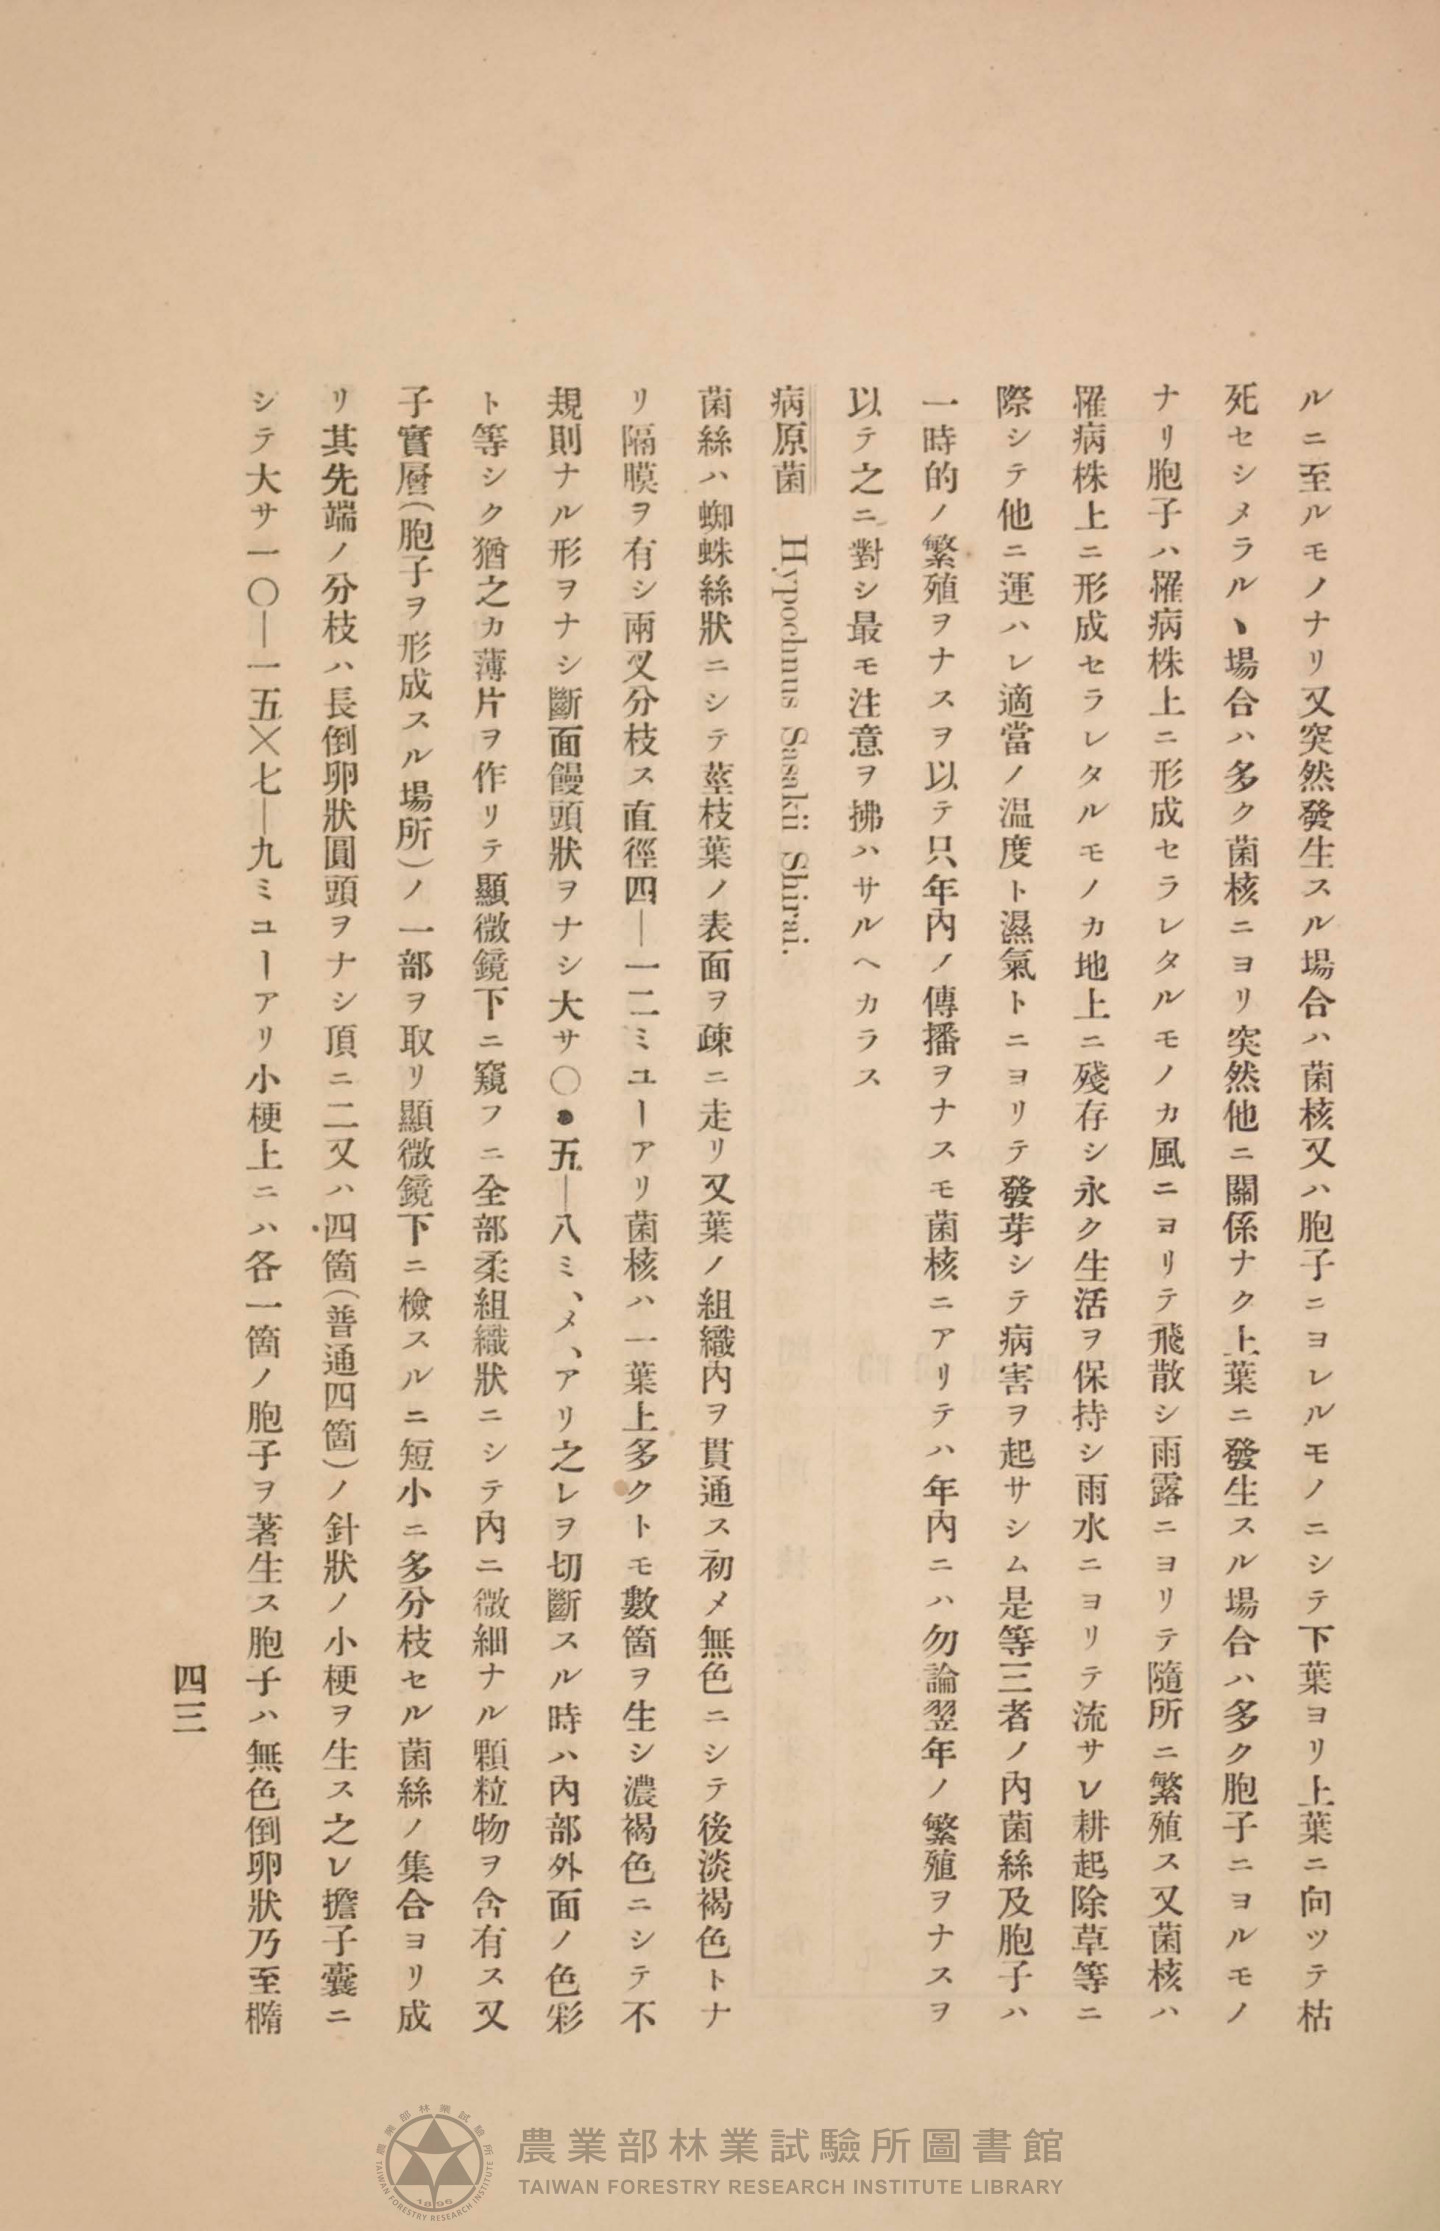 ルニ至ルモノナリ又突然發生スル場合ハ菌核又ハ胞子ニヨレルモノニシテ下葉ヨリ上葉ニ向ツテ枯
死セシメラルヽ場合ハ多ク菌核ニヨリ突然他ニ關係ナク上葉ニ發生スル場合ハ多ク胞子ニヨルモノ
ナリ胞子ハ罹病株上ニ形成セラレタルモノカ風ニヨリテ飛散シ雨露ニヨリテ隨所ニ繁殖ス又菌核ハ
罹病株上ニ形成セラレタルモノカ地上ニ殘存シ永ク生活ヲ保持シ雨水ニヨリテ流サレ耕起除草等ニ
際シテ他ニ運ハレ適當ノ温度ト濕氣トニヨリテ發芽シテ病害ヲ起サシム是等三者ノ内菌絲及胞子ハ
一時的ノ繁殖ヲナスヲ以テ只年內ノ傳播ヲナスモ菌核ニアリテハ年內ニハ勿論翌年ノ繁殖ヲナスヲ
以テ之ニ對シ最モ注意ヲ拂ハサルヘカラス
病原菌 Hypochnus Sasakii Shirai.
菌絲ハ蜘蛛絲狀ニシテ莖枝葉ノ表面ヲ疎ニ走リ又葉ノ組織内ヲ貫通ス初メ無色ニシテ後淡褐色トナ
リ隔膜ヲ有シ兩叉分枝ス直徑四—一二ミユーアリ菌核ハ一葉上多クトモ數箇ヲ生シ濃褐色ニシテ不
規則ナル形ヲナシ斷面饅頭狀ヲナシ大サ〇•五—八ミ、メ、アリ之レヲ切斷スル時ハ內部外面ノ色彩
ト等シク猶之カ薄片ヲ作リテ顯微鏡下ニ窺フニ全部柔組織狀ニシテ內ニ微細ナル顆粒物ヲ含有ス又
子實層(胞子ヲ形成スル場所)ノ一部ヲ取リ顯微鏡下ニ檢スルニ短小ニ多分枝セル菌絲ノ集合ヨリ成
リ其先端ノ分枝ハ長倒卵狀圓頭ヲナシ頂ニ二又ハ四箇(普通四箇)ノ針狀ノ小梗ヲ生ス之レ擔子囊ニ
シテ大サ一〇—一五×七—九ミユーアリ小梗上ニハ各一箇ノ胞子ヲ著生ス胞子ハ無色倒卵狀乃至橢
四三
農業部林業試驗所圖書館
TAIWAN FORESTRY RESEARCH INSTITUTE LIBRARY
農業部林業試驗所
TAIWAN FORESTRY RESEARCH INSTITUTE
1896